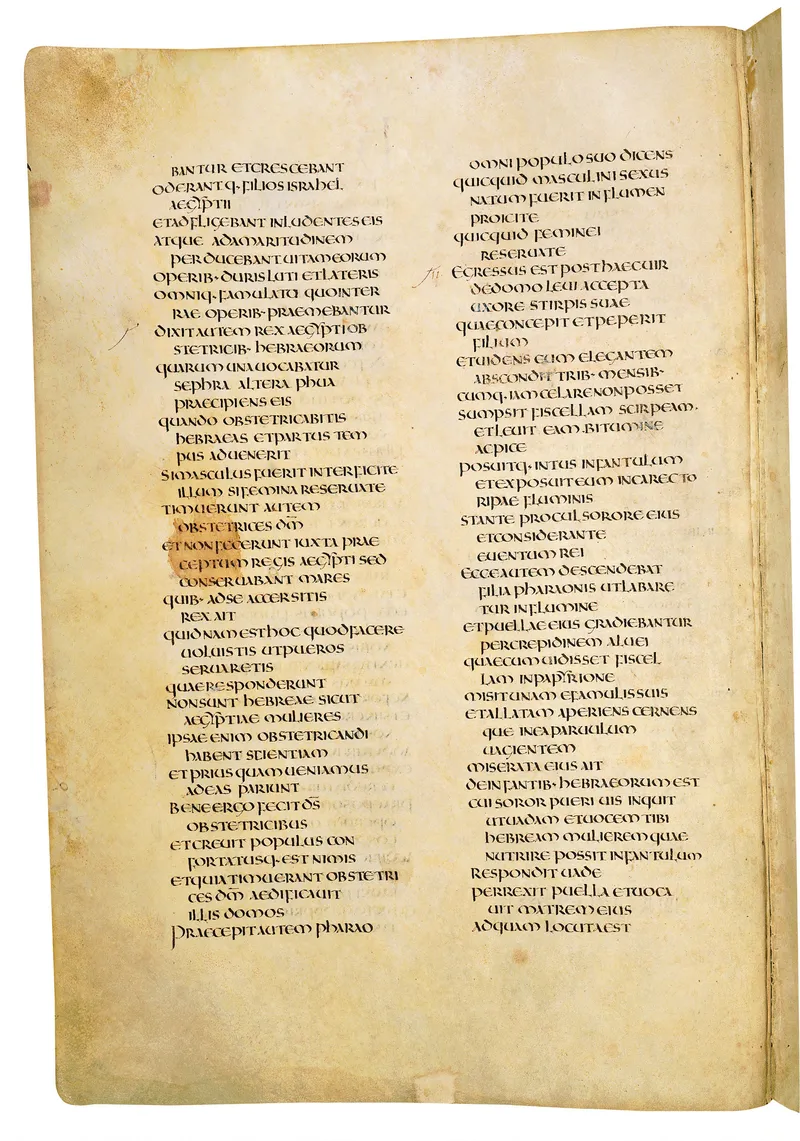 BANTUR ETCRESCEBANT
ODERANTQ· FILIOS ISRAHEL
AEGYPTII
ETADFLIGEBANT INLUDENTES EIS
ATQUE ADAMARITUDINEM
PERDUCEBANT UITAM EORUM
OPERIB· DURIS LUTI ET LATERIS
OMNIQ· FAMULATU QUO INTER
RAE OPERIB· PRAEMEBANTUR
DIXIT AUTEM REX AEGYPTI OB
STETRICIB· HEBRAEORUM
QUARUM UNA UOCABATUR
SEPHRA ALTERA PHUA
PRAECIPIENS EIS
QUANDO OBSTETRICABITIS
HEBRAEAS ET PARTUS TEM
PUS ADUENERIT
SI MASCULUS FUERIT INTERFICITE
ILLUM SI FEMINA RESERUATE
TIMUERUNT AUTEM
OBSTETRICES DM̅
ET NON FECERUNT IUXTA PRAE
CEPTUM REGIS AEGYPTI SED
CONSERUABANT MARES
QUIB· ADSE ACCERSITIS
REX AIT
QUIDNAM EST HOC QUOD FACERE
UOLUISTIS UT PUEROS
SERUARETIS
QUAE RESPONDERUNT
NON SUNT HEBREAE SICUT
AEGYPTIAE MULIERES
IPSAE ENIM OBSTETRICANDI
HABENT SCIENTIAM
ET PRIUS QUAM UENIAMUS
AD EAS PARIUNT
BENE ERGO FECIT DS̅
OBSTETRICIBUS
ET CREUIT POPULUS CON
FORTATUSQ· EST NIMIS
ET QUIA TIMUERANT OBSTETRI
CES DM̅ AEDIFICAUIT
ILLIS DOMOS
PRAECEPIT AUTEM PHARAO
OMNI POPULO SUO DICENS
QUICQUID MASCULINI SEXUS
NATUM FUERIT IN FLUMEN
PROICITE
QUICQUID FEMINEI
RESERUATE
EGRESSUS EST POST HAEC UIR
DE DOMO LEUI ACCEPTA
UXORE STIRPIS SUAE
QUAE CONCEPIT ET PEPERIT
FILIUM
ET UIDENS EUM ELEGANTEM
ABSCONDIT TRIB· MENSIB·
CUMQ· IAM CELARE NON POSSET
SUMPSIT FISCELLAM SCIRPEAM·
ET LEUIT EAM BITUMINE
AC PICE
POSUITQ· INTUS INFANTULUM
ET EXPOSUIT EUM IN CARECTO
RIPAE FLUMINIS
STANTE PROCUL SORORE EIUS
ET CONSIDERANTE
EUENTUM REI
ECCE AUTEM DESCENDEBAT
FILIA PHARAONIS UT LABARE
TUR IN FLUMINE
ET PUELLAE EIUS GRADIEBANTUR
PER CREPIDINEM ALUEI
QUAE CUM UIDISSET FISCEL
LAM IN PAPYRIONE
MISIT UNAM E FAMULIS SUIS
ET ALLATAM APERIENS CERNENS
QUE IN EA PARUULUM
UAGIENTEM
MISERATA EIUS AIT
DE INFANTIB· HEBRAEORUM EST
CUI SOROR PUERI UIS INQUIT
UT UADAM ET UOCEM TIBI
HEBREAM MULIEREM QUAE
NUTRIRE POSSIT INFANTULUM
RESPONDIT UADE
PERREXIT PUELLA ET UOCA
UIT MATREM EIUS
AD QUAM LOCUTA EST